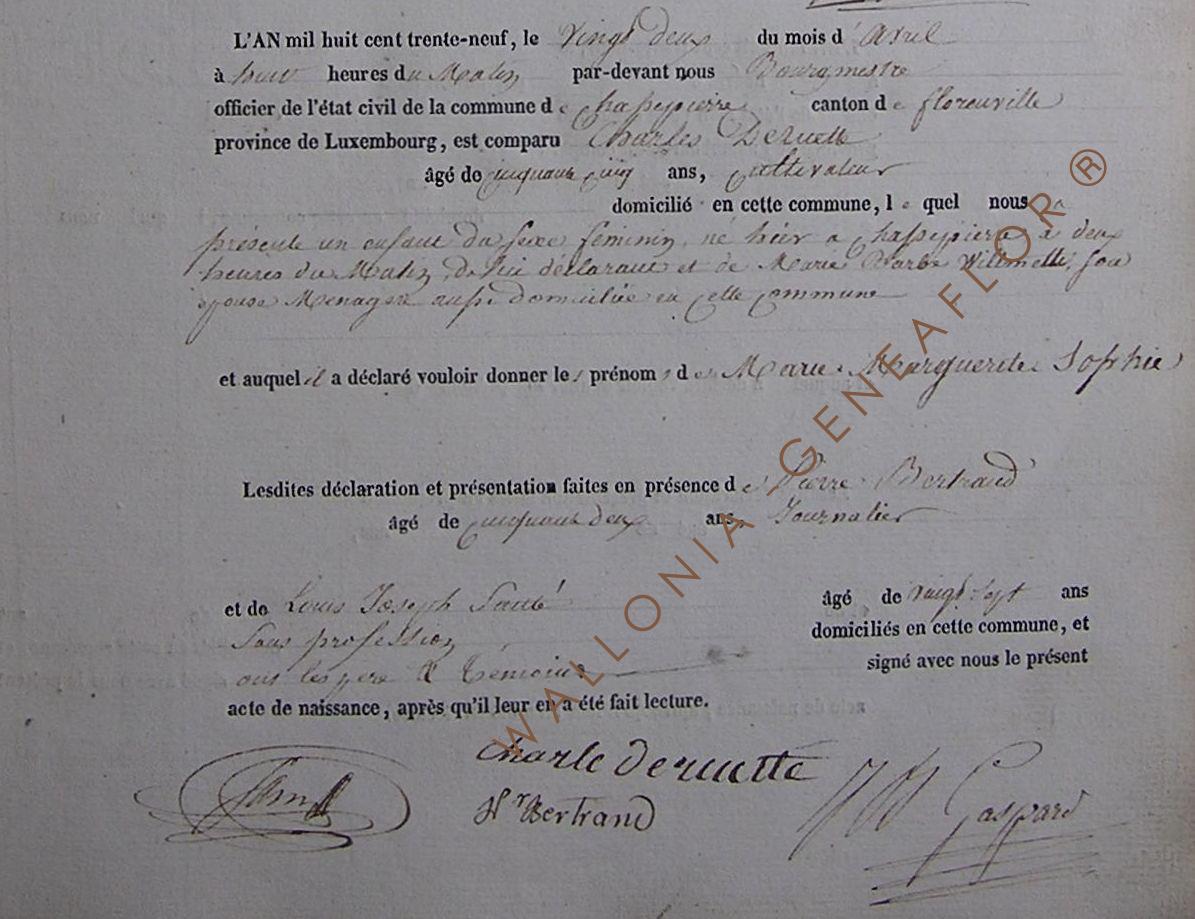 L'AN mil huit cent trente-neuf, le vingt deux du mois d'avril
à huit heures du Matin par-devant nous Bourgmestre
officier de l'état civil de la commune de chassepierre canton de florenville
province de Luxembourg, est comparu Charles Deruette
âgé de cinquante cinq ans, cultivateur
domicilié en cette commune, lequel nous a
présenté un enfant du sexe féminin, né hier a chassepierre a deux
heures du Matin, de lui déclarant et de Marie Barbe Willmette, son
épouse Menagere aussi domiciliée en cette commune
et auquel il a déclaré vouloir donner les prénoms de Marie Marguerite Sophie
Lesdites déclaration et présentation faites en présence de Pierre Bertrand
âgé de cinquante deux ans, Journalier
et de Louis Joseph âgé de vingt sept ans
Sans profession domiciliés en cette commune, et
ont les pere & témoins signé avec nous le présent
acte de naissance, après qu'il leur en a été fait lecture.
Charle Deruette
Bertrand
Gaspard
WALLONIA GENEAFLOR ®